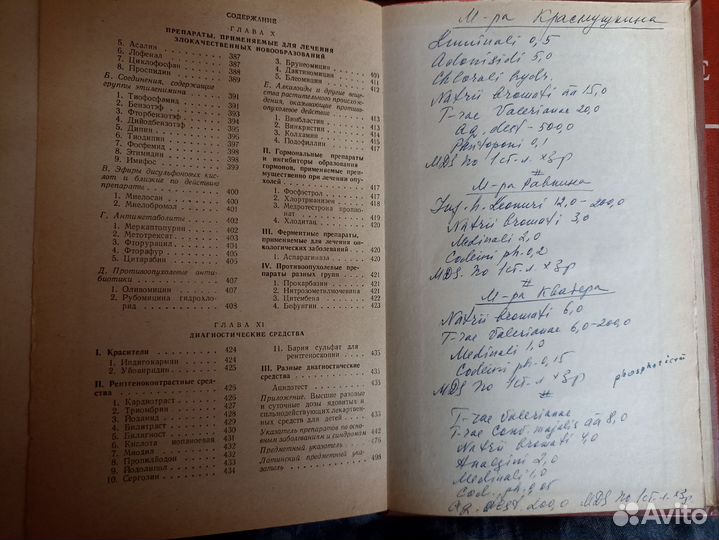 СОДЕРЖАНИЕ
ГЛАВА X
ПРЕПАРАТЫ, ПРИМЕНЯЕМЫЕ ДЛЯ ЛЕЧЕНИЯ
ЗЛОКАЧЕСТВЕННЫХ НОВООБРАЗОВАНИЙ
5. Асалин 387
6. Лофенал 387
7. Циклофосфан 388
8. Проспидин 389
Б. Соединения, содержащие
группы этиленимина
1. Тиофосфамид 391
2. Бензотэф 393
3. Фторбензотэф 394
4. Дийодбензотэф 395
5. Дипин 395
6. Тиодипин 396
7. Фосфемид 397
8. Этимидин 398
9. Имифос 399
В. Эфиры дисульфоновых кислот
и близкие по действию
препараты
1. Миелосан 400
2. Миелобромол 401
Г. Антиметаболиты
1. Меркаптопурин 402
2. Метотрексат 402
3. Фторурацил 403
4. Фторафур 404
5. Цитарабин 405
Д. Противоопухолевые антибиотики
1. Оливомицин 407
2. Рубомицина гидрохлорид 408
3. Брунеомицин 400
4. Дактиномицин 410
5. Блеомицин
Е. Алкалоиды и другие вещества
растительного происхождения,
оказывающие противоопухолевое
действие
1. Винбластин 413
2. Винкристин 413
3. Колхамин
4. Подофиллин
II. Гормональные препараты
и ингибиторы образования
гормонов, применяемые преимущественно
при лечении опухолей
1. Фосфэстрол 417
2. Хлортрианизен
3. Медротестрона пропионат
4. Хлодитан
III. Ферментные препараты,
применяемые для лечения онкологических
заболеваний 420
1. Аспарагиназа 420
IV. Противоопухолевые препараты
разных групп 421
1. Прокарбазин 421
2. Нитрозометилмочевина
3. Цитембена 422
4. Бефунгин 423
ГЛАВА XI
ДИАГНОСТИЧЕСКИЕ СРЕДСТВА
I. Красители 424
1. Индигокармин 424
2. Убоавиридин 424
II. Рентгеноконтрастные средства 425
1. Кардиотраст 425
2. Триомбрин 428
3. Йодамид 429
4. Билитраст 431
5. Билигност 431
6. Кислота йопаноевая 431
7. Миодил 433
8. Пропилйодон 433
9. Йодолипол 434
10. Сергозин 434
11. Бария сульфат для
рентгеноскопии 435
III. Разные диагностические
средства 435
Ацидотест 435
Приложение. Высшие разовые
и суточные дозы ядовитых и
сильнодействующих лекарственных
средств для детей
Указатель препаратов по основным
заболеваниям и синдромам
Предметный указатель 476
Латинский предметный указатель 498
М-ра Краснушкина
Luminali 0,5
Adonisidi 5,0
Chlorali hydr.
Natrii bromati āā 15,0
T-rae Valerianae 20,0
Aq. dest - 500,0
Pantoponi 0,1
MDS по 1 ст. л. × 3 р
#
М-ра Равкина
Inf. h. Leonuri 12,0 - 200,0
Natrii bromati 3,0
Medinali 2,0
Codeini ph. 0,2
MDS. по 1 ст. л × 3 р
#
М-ра Кватера
Natrii bromati 6,0
T-rae Valerianae 6,0 - 200,0
Medinali 1,0
Codeini ph. 0,15
MDS по 1 ст. л × 3 р
#
T-rae Valerianae
T-rae Conv. majalis āā 8,0
Natrii bromati 4,0
Analgini 2,0
Medinali 1,0
Cod. ph.
aq. dest. 200,0 MDS по 1 ст. л × 3 р
Avito